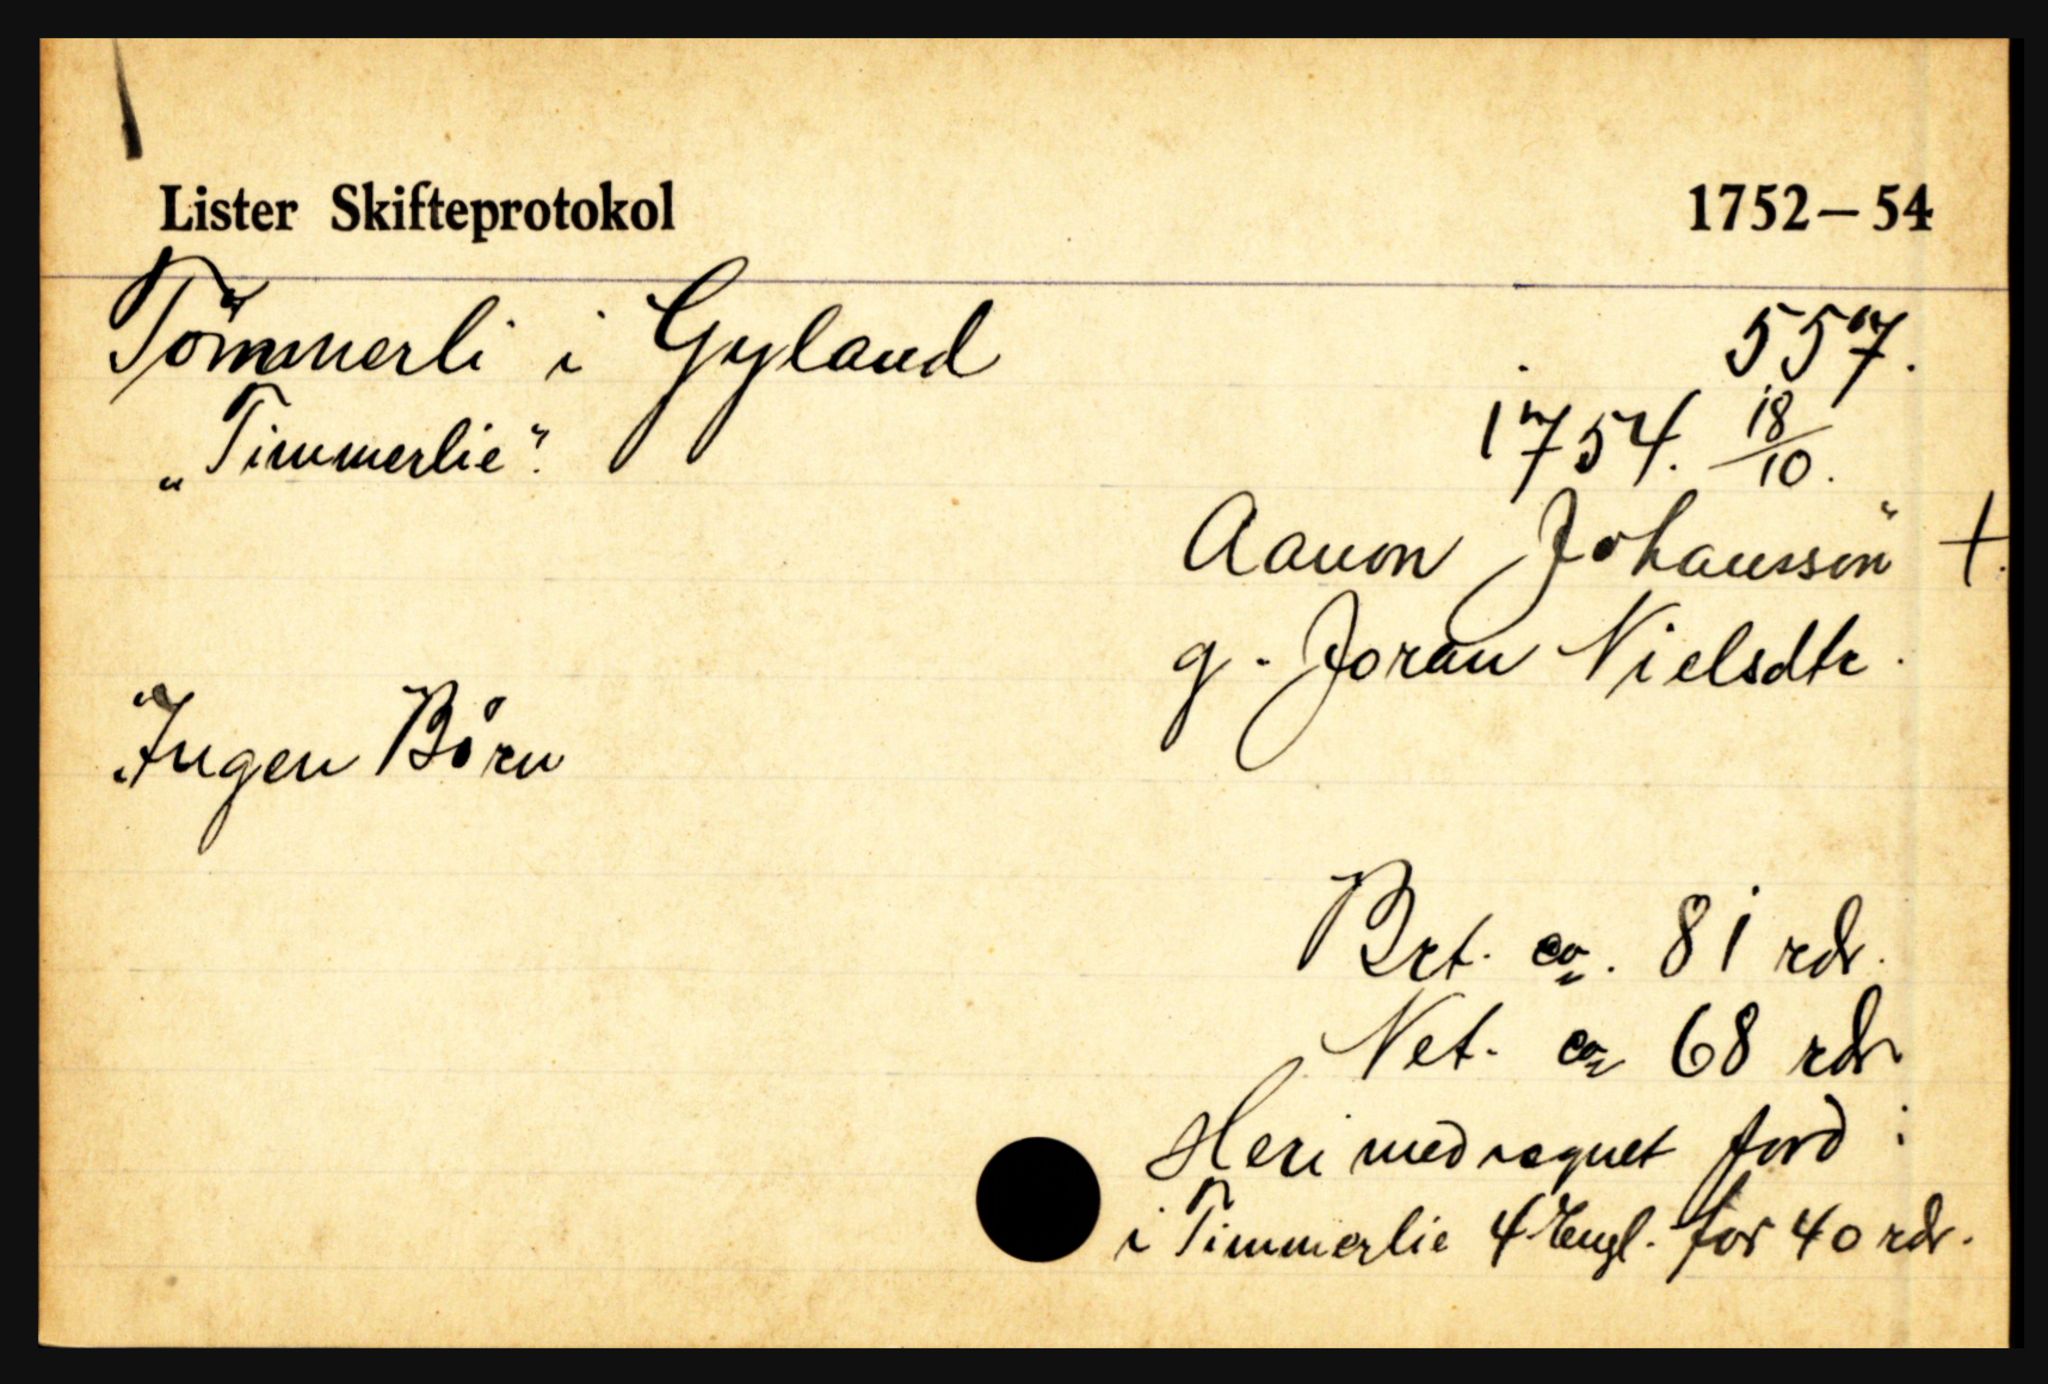 Lister Skifteprotokol 1752-54
Tømmerli i Gyland 557.
"Timmerlie". 1754. 18/10.
Aanon Johansson +
g. Joran Nielsdtr.
Ingen Børn
Brt. ca. 81 rdr.
Net. ca 68 rdr
Heri medregnet jord
i Timmerlie 4 Engl. for 40 rdr.